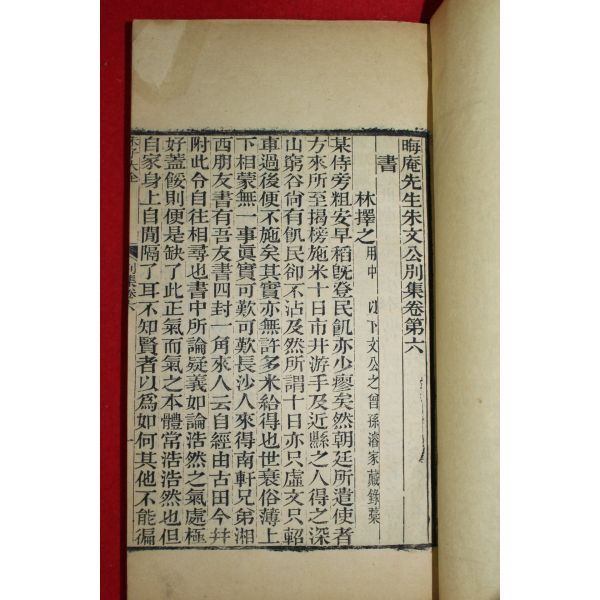 晦庵先生朱文公別集卷第六
書
林擇之 用中 以下文公之曾孫濬家藏錄藁
某侍旁粗安早稻旣登民飢亦少廖矣然朝廷所遣使者
方來所至揭榜施米十日市井游手及近縣之人得之深
山窮谷尙有飢民卻不沾及然所謂十日亦只虛文只軺
車過後便不施矣其實亦無許多米給得也世衰俗薄上
下相蒙無一事眞實可歎可歎長沙人來得南軒兄弟湘
西朋友書有吾友書四封一角來人云自經由古田今幷
附此令自往相尋也書中所論疑義如論浩然之氣處極
好蓋餒則便是缺了此正氣而氣之本體常浩浩然也但
自家身上自閒隔了耳不知賢者以爲如何其他不能徧
朱子大全
別集卷六